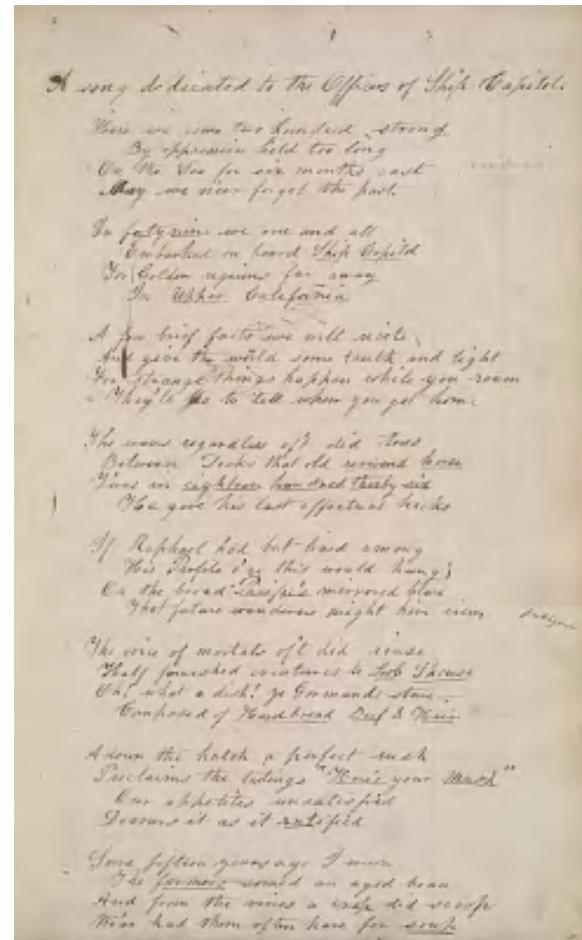 A song dedicated to the Officers of Ship Capitol.
Here we come two hundred strong
By oppression held too long
On the Sea for six months past
May we never forget the past.
In forty nine we one and all
Embarked on board Ship Capitol
For Golden regions far away
In Upper California
A few brief facts we will recite
And give the world some truth and light
For strange things happen while you roam
They'le do to tell when you get home.
The waves regardless oft did toss
Between Decks that old reverend horse
Twas in eighteen hundred thirty six
He gave his last effectual kicks
If Raphael had but lived among
His Profile o'er this would hung
On the broad Pacific's mirrored blue
That future wanderers might him view
The voice of mortals oft did rouse
Half famished creatures to Lob Scouse
Oh! what a dish! ye Gormands stare
Composed of Hardbread Beef & Hair
Adown the hatch a perfect rush
Proclaims the tidings "Here's your Mush"
Our appetites unsatisfied
Devours it as it
Some fifteen years ago I
The farmers an aged bean
And from the vines a crop did scoop
We've had them often here for soup